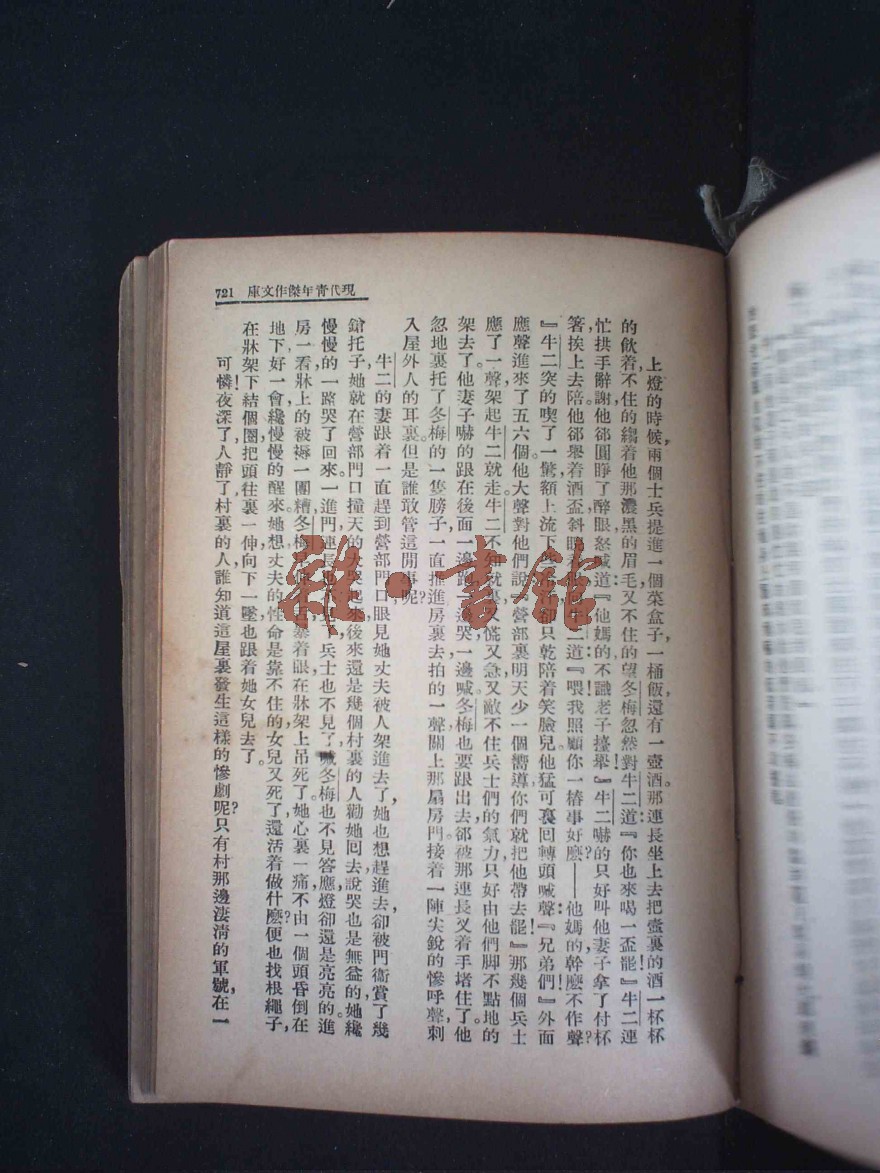 現代青年傑作文庫 721
上燈的時候，兩個士兵提進一個菜盒子，一桶飯，還有一壺酒。那連長坐上去把壺裏的酒一杯杯
的飲着，不住的縐着他那濃黑的眉毛，又不住的望冬梅忽然對牛二道：『你也來喝一盃罷！』牛二連
忙拱手辭謝，他郤圓睜了醉眼怒喊道：『他媽的不識老子擡舉！』牛二嚇的只好叫他妻子拿了付杯
箸，挨上去陪他。郤舉着酒盃斜 牛二道：『喂，我照顧你一樁事好麼？——他媽的，幹麼不作聲？
『牛二突的喫了一驚，額上流下 卻只乾陪着笑臉兒。他猛可裏回轉頭喊聲：『兄弟們！』外面
應聲進來了五六個。他大聲對他們說：『營部裏明天少一個嚮導，你們就把他帶去罷！』那幾個兵士
應了一聲，架起牛二就走。牛二不知就裏，又慌又急，又敵不住兵士們的氣力，只好由他們脚不點地的
架去了。他妻子嚇的跟在後面，一邊跑一邊哭，一邊喊。冬梅也要跟出去，郤被那連長叉着手堵住了。他
忽地裏托了冬梅的一隻膀子，一直推進房裏去，拍的一聲關上那扇房門。接着一陣尖銳的慘呼聲刺
入屋外人的耳裏。但是誰敢管這閒事呢？
牛二的妻跟着一直趕到營部門口，眼見她丈夫被人架進去了，她也想趕進去，卻被門衞賞了幾
鎗托子，她就在營部門口撞天的大哭起來。後來還是幾個村裏的人勸她回去，說哭也是無益的。她纔
慢慢的一路哭了回來。一進門，連長也不 兵士也不見了，喊冬梅也不見答應，燈卻還是亮亮的。進
房一看，牀上的被褥一團糟，冬梅 暴着眼在牀架上吊死了。她心裏一痛，不由一個頭昏倒在
地下，好一會纔慢慢的醒來。她想丈夫的性命是靠不住的，女兒又死了，還活着做什麼？便也找根繩子，
在牀架下結個圈，把頭往裏一伸，向下一墜，也跟着她女兒去了。
可憐！夜深了，人靜了，村裏的人誰知道這屋裏發生這樣的慘劇呢？只有村那邊淒清的軍號，在一
雜·書館